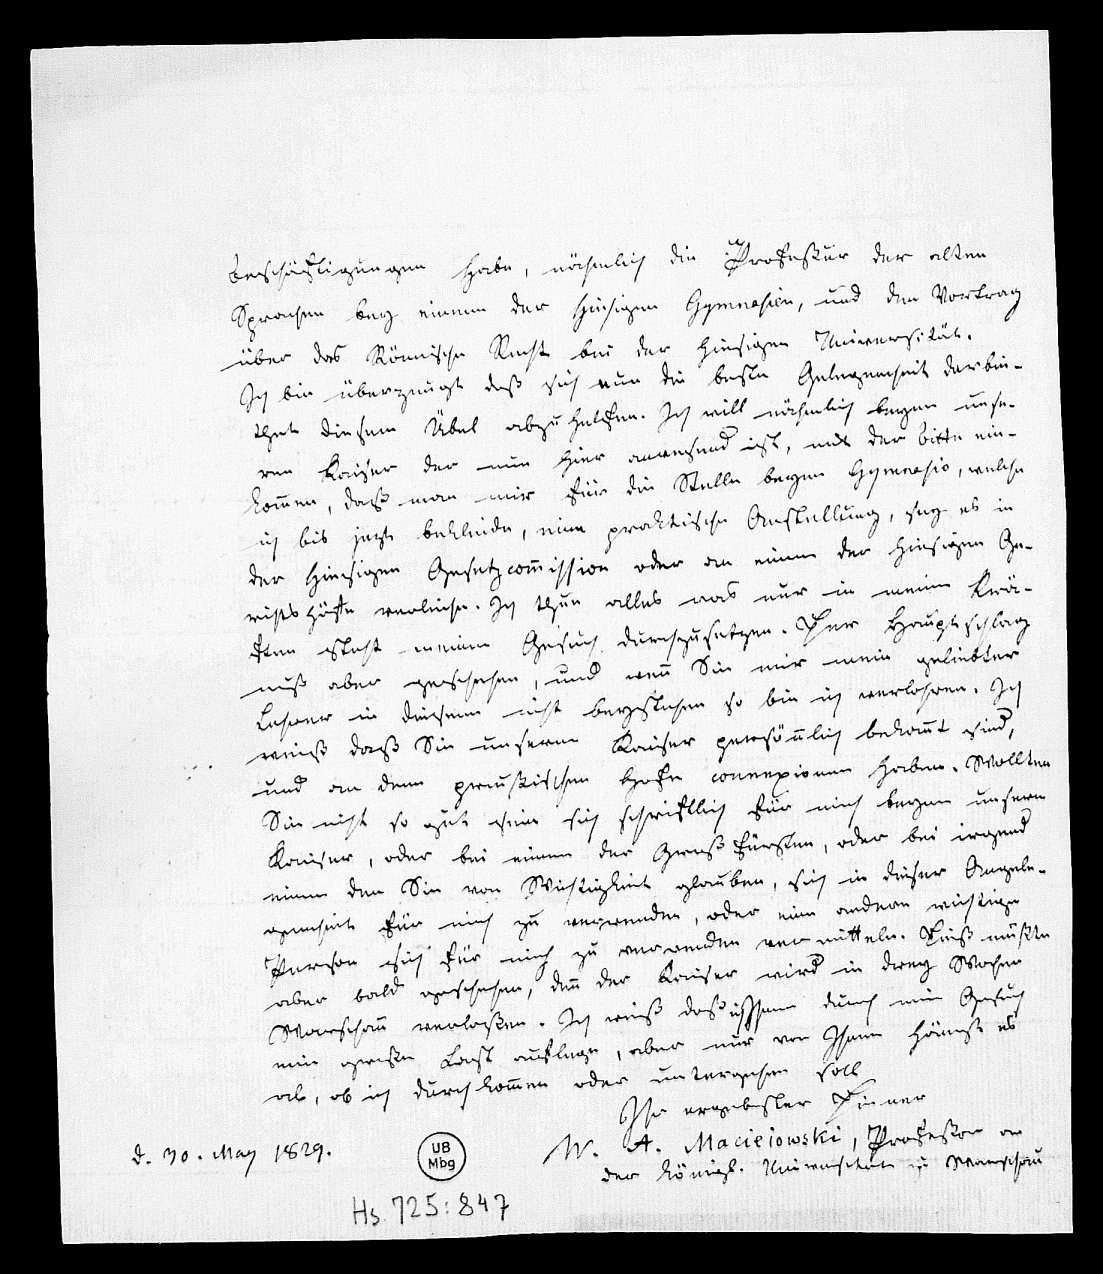 beschäftigungen habe, nähmlich die Professur der alten
Sprachen bey einem der hiesigen Gymnasien, und den Vortrag
über das Römische Recht bei der hiesigen Universität.
Ich bin überzeugt daß sich nun die beste Gelegenheit darbie-
thet diesem Übel abzuhelfen. Ich will nähmlich beym unse-
ren Kaiser der nun hier anwesend ist, mit der bitte ein-
kom̅en, daß man mir für die Stelle beym Gymnasio, welche
ich bis jezt bekleide, eine praktische Anstellung, sey es in
der hiesigen Gesetzcom̅ission oder an einem der hiesigen Ge-
richtshöfe verleihe. Ich thue alles was nur in meinen Kräf-
ten steht meinen Gesuch durchzusetzen. Der Hauptschlag
muß aber geschehen, und wen̅ Sie mir mein geliebter
Lehrer in diesem nicht beystehen so bin ich verlohren. Ich
weiß daß Sie unserem Kaiser persön̅lich bekan̅t sind,
und an dem preussischen Hofe connexionen haben. Wollten
Sie nicht so gut sein sich schriftlich für mich beym unsern
Kaiser, oder bei einem der Groß Fürsten, oder bei irgend
einem den Sie von Wichtigkeit glauben, sich in dieser Angele-
genheit für mich zu verwenden, oder eine andere wichtige
Person sich für mich zu verwenden vermitteln. Dieß müßte
aber bald geschehen, den̅ der Kaiser wird in drey Wochen
Warschau verlaßen. Ich weiß daß ich Ihnen durch mein Gesuch
eine große Last auflege, aber nur von Ihnen hängt es
ab, ob ich durchkom̅en oder untergehen soll
Ihr ergebenster Diener
d. 30. May 1829.
W. A. Maciejowski, Professor an
der königl. Universität zu Warschau
UB
Mbg
Hs. 725:847